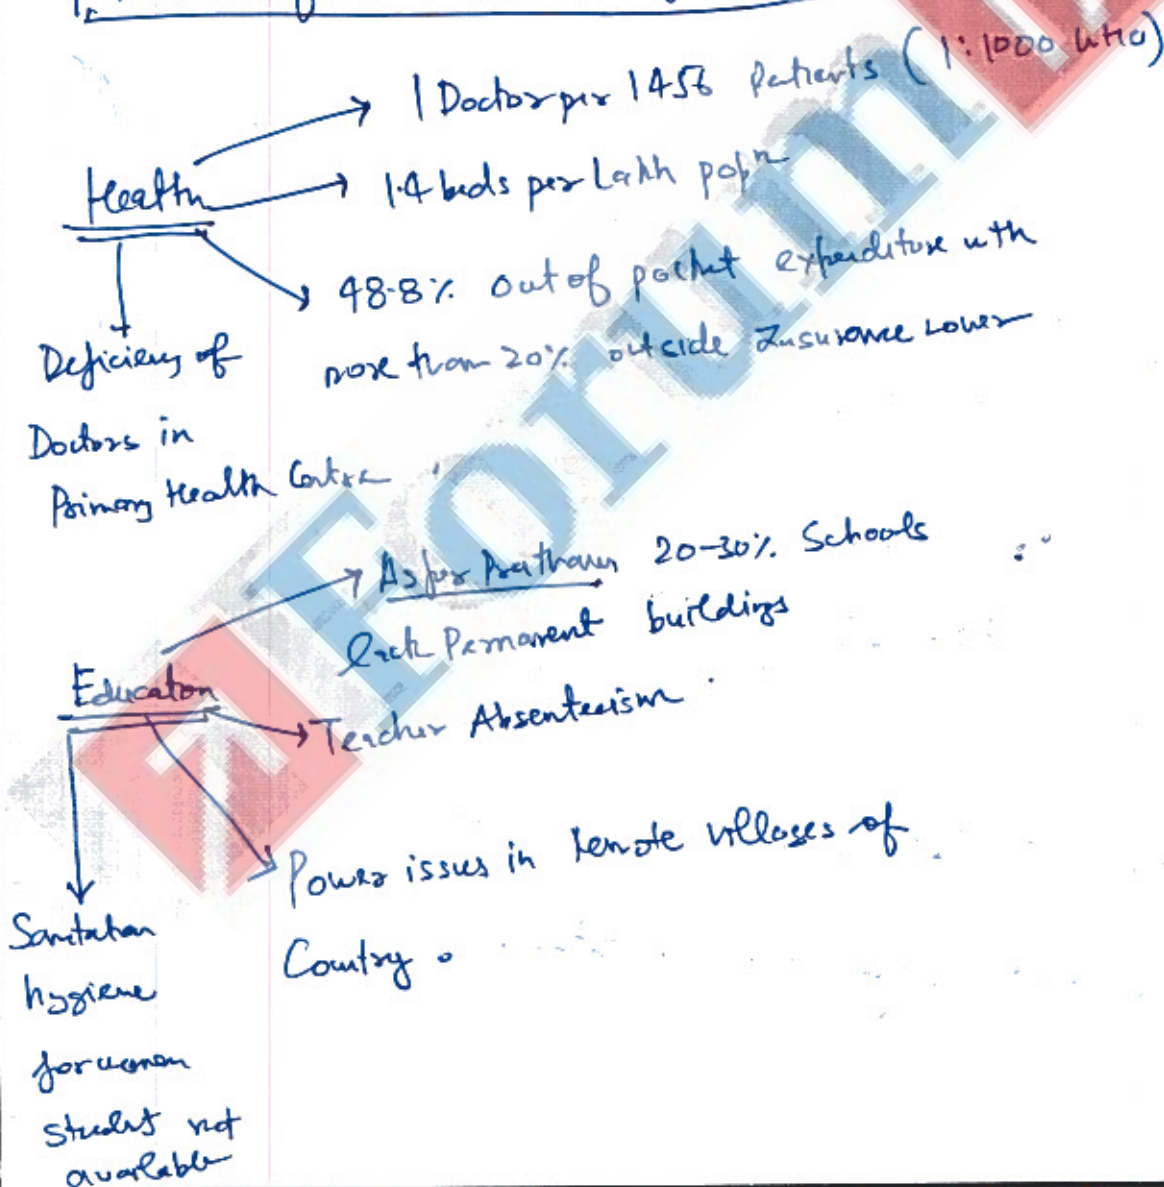 1 Doctor per 1456 Patients (1:1000 WHO)
Health
1.4 beds per Lakh popn
48.8% out of pocket expenditure with
more than 20% outside Insurance cover
Deficiency of
Doctors in
Primary Health Centre
As per Pratham 20-30% Schools
lack Permanent buildings
Education
Teacher Absenteeism
Power issues in remote villages of
Country.
Sanitation
hygiene
for women
student not
available
Forum